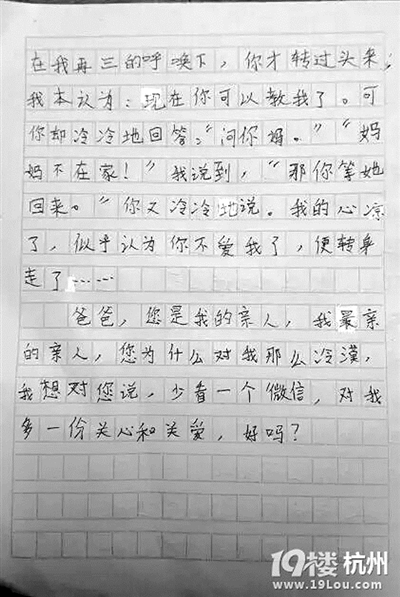 在我再三的呼唤下，你才转过头来，
我本认为：现在你可以教我了。可
你却冷冷地回答：“问你妈。”“妈
妈不在家！”我说到，“那你等她
回来。”你又冷冷地说。我的心凉
了，似乎认为你不爱我了，便转身
走了……
爸爸，您是我的亲人，我最亲
的亲人，您为什么对我那么冷漠，
我想对您说，少看一个微信，对我
多一份关心和关爱，好吗？
19楼 杭州
www.19Lou.com